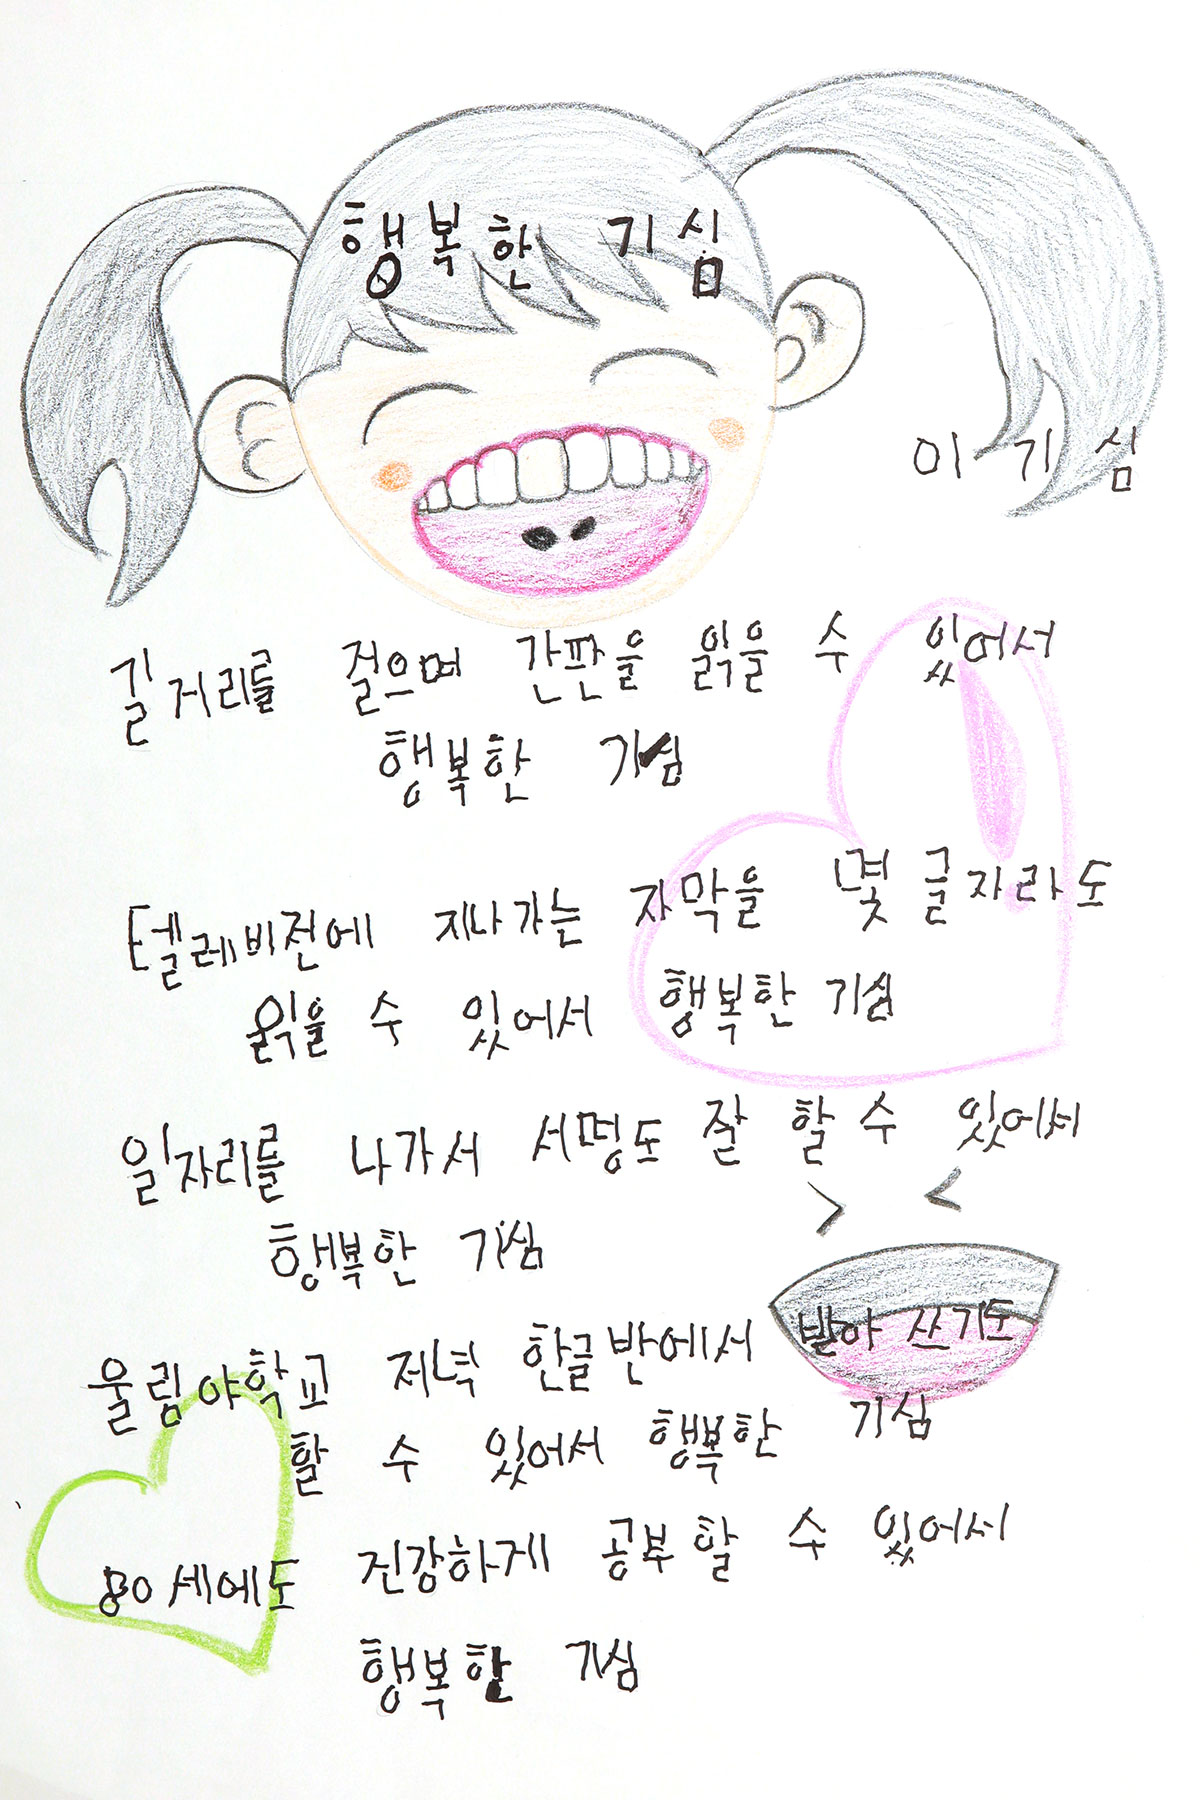 행복한 기심
이기심
길거리를 걸으며 간판을 읽을 수 있어서
행복한 기심
텔레비전에 지나가는 자막을 몇 글자라도
읽을 수 있어서 행복한 기심
일자리를 나가서 서명도 잘 할 수 있어서
행복한 기심
울림야학교 저녁 한글반에서 받아 쓰기도
할 수 있어서 행복한 기심
80세에도 진강하게 공부할 수 있어서
행복한 기심